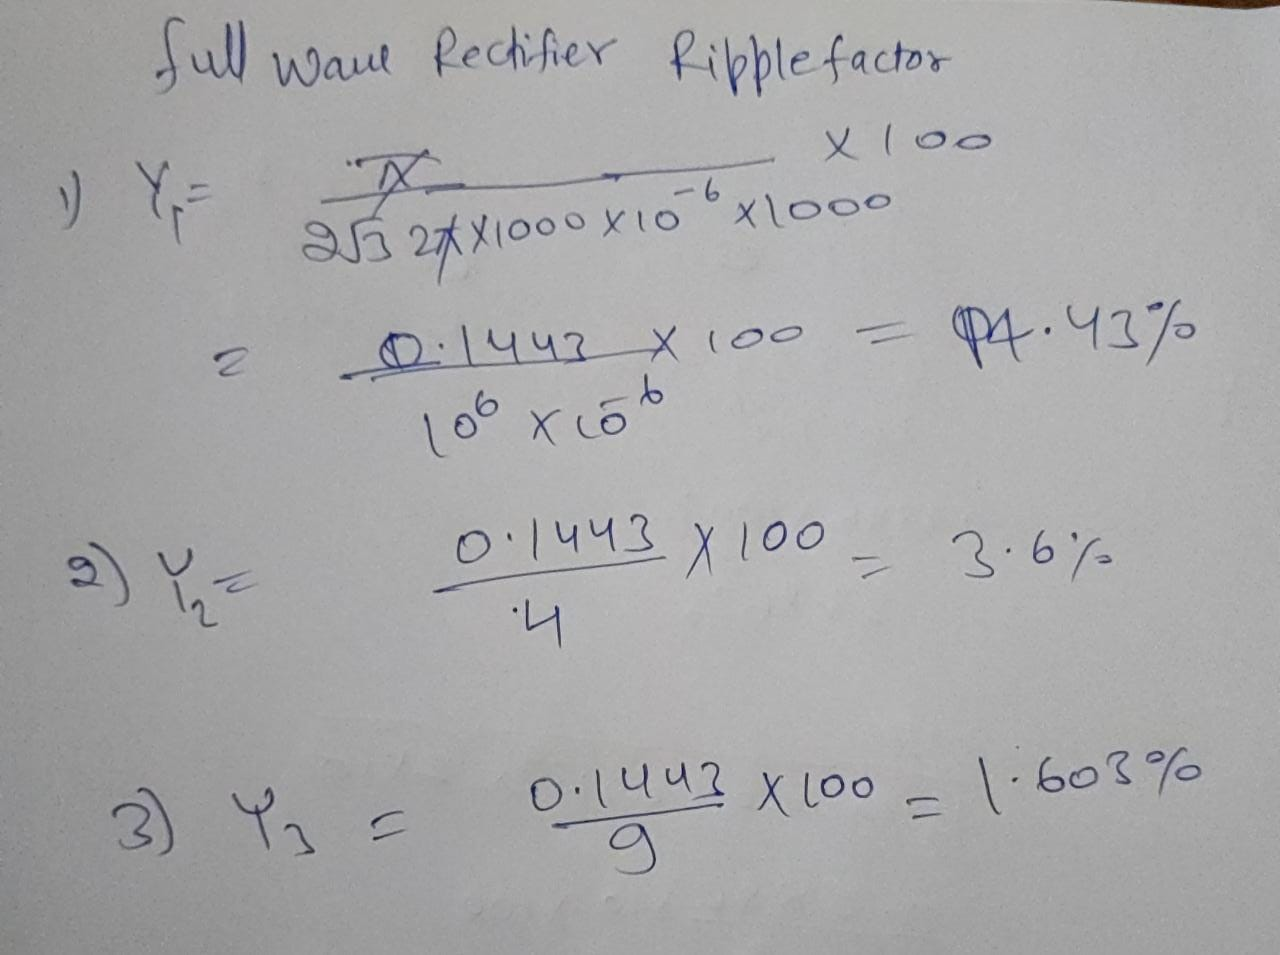 full wave Rectifier Ripple factor
1) γ₁ = π / 2√3 2π×1000×10⁻⁶×1000 × 100
= 0.1443 / 10⁶ × 10⁻⁶ × 100 = 14.43%
2) γ₂ = 0.1443 / 4 × 100 = 3.6%
3) γ₃ = 0.1443 / 9 × 100 = 1.603%